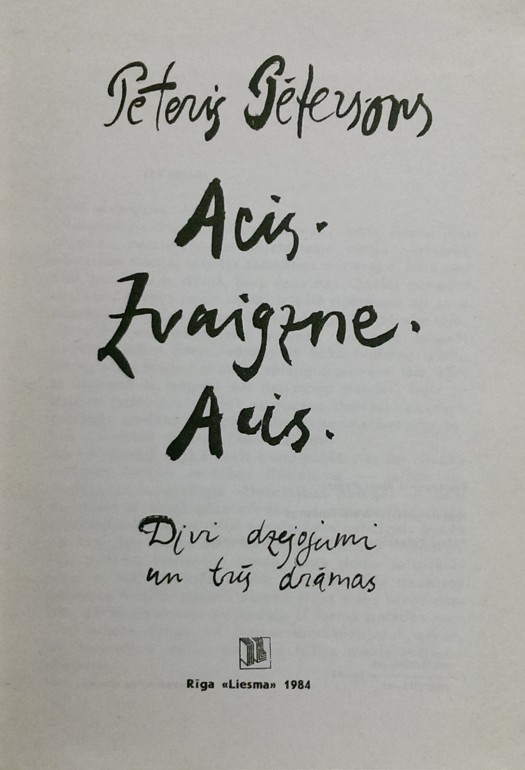 Pēteris Pētersons
Acis.
Zvaigzne.
Acis.
Divi dzejojumi
un trīs drāmas
Rīga «Liesma» 1984